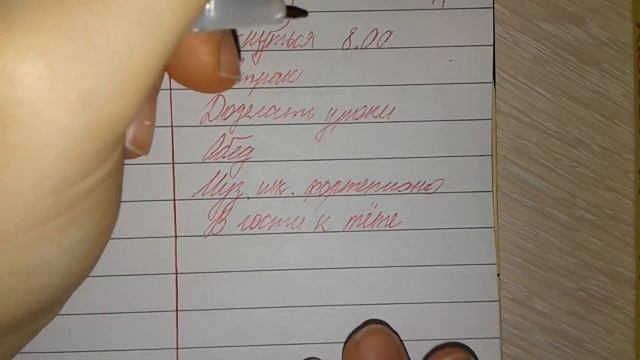 8.00
Доделать уроки
Обед
Муз. шк. фортепиано
В гости к тёте